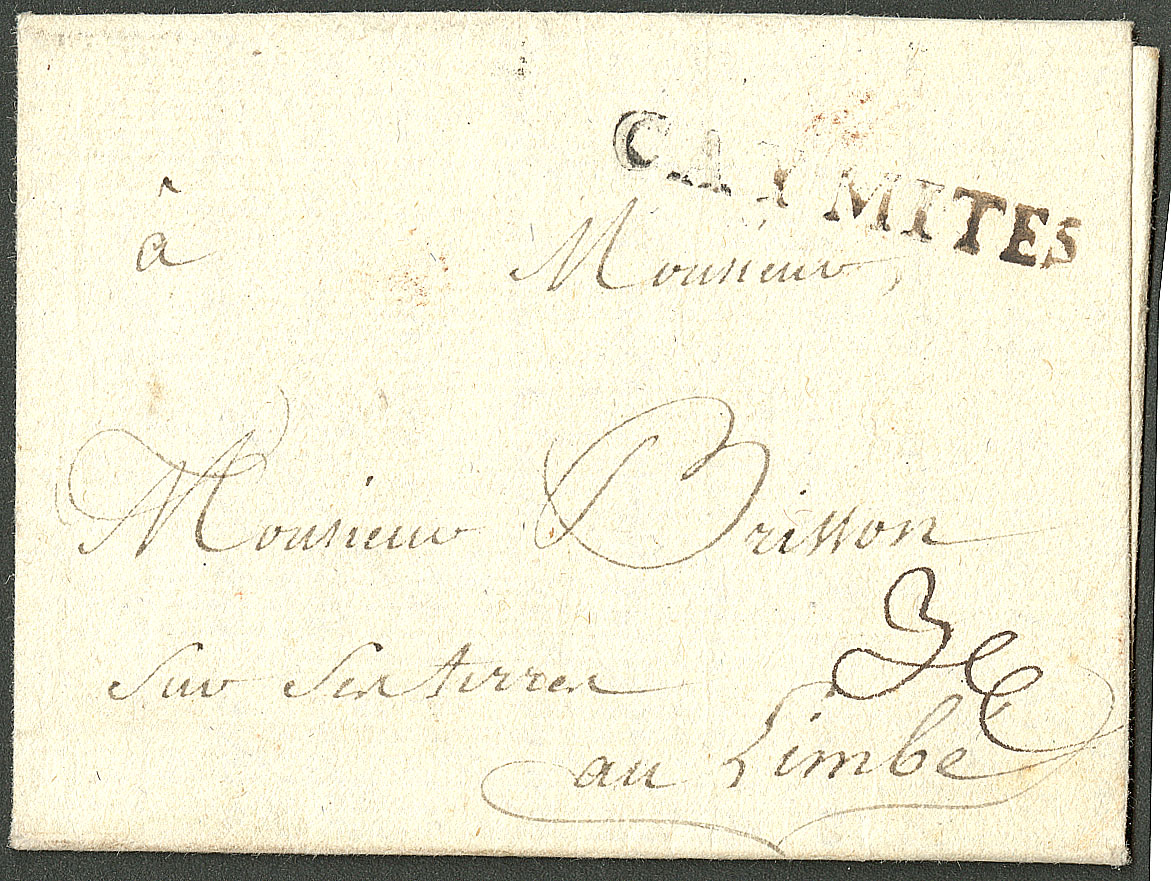 CAYMITES
à Monsieur,
Monsieur Brisson
Sur Ses terres
au Limbé